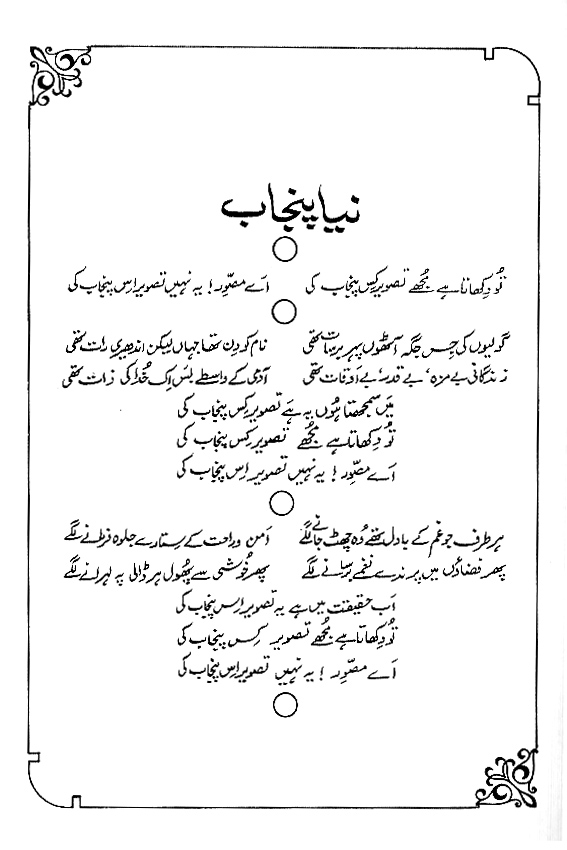 نیا پنجاب
تُو دکھاتا ہے مُجھے تصویر کِس پنجاب کی اَے مصّوِر! یہ نہیں تصویر اِس پنجاب کی
گولیوں کی جِس جگہ آٹھوں پہر برسات تھی نام کو دِن تھا جہاں لیکن اندھیری رات تھی
زندگانی بے مزہ، بے قدر، بے اَوقات تھی آدمی کے واسطے بس اِک خُدا کی ذات تھی
مَیں سمجھتا ہُوں یہ ہے تصویر کِس پنجاب کی
تُو دکھاتا ہے مُجھے تصویر کِس پنجاب کی
اَے مصّوِر! یہ نہیں تصویر اِس پنجاب کی
ہر طرف جو غم کے بادل تھے وُہ چھٹ جانے لگے اَمن و راحت کے ستارے جلوہ فرمانے لگے
پھر فضاؤں میں پرندے نغمے برسانے لگے پھر خُوشی سے پھُول ہر ڈالی پہ لہرانے لگے
اَب حقیقت میں ہے یہ تصویر اِس پنجاب کی
تُو دکھاتا ہے مُجھے تصویر کِس پنجاب کی
اَے مصّوِر! یہ نہیں تصویر اِس پنجاب کی